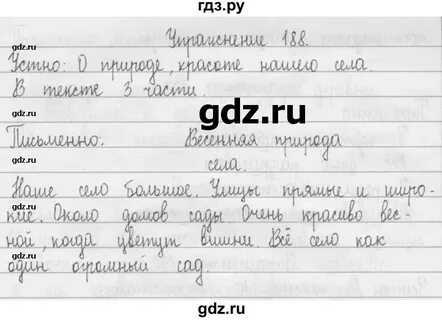 гдз.ру
Упражнение 188.
Устно: О природе, красоте нашего села.
В тексте 3 части.
gdz.ru
Письменно. Весенняя природа
села.
Наше село большое. Улицы прямые и широ-
кие. Около домов сады. Очень красиво вес-
ной, когда цветут вишни. Всё село как
один огромный сад.
gdz.ru
gdz.ru
gdz.ru
gdz.ru
gdz.ru
gdz.ru
gdz.ru
gdz.ru
gdz.ru
gdz.ru